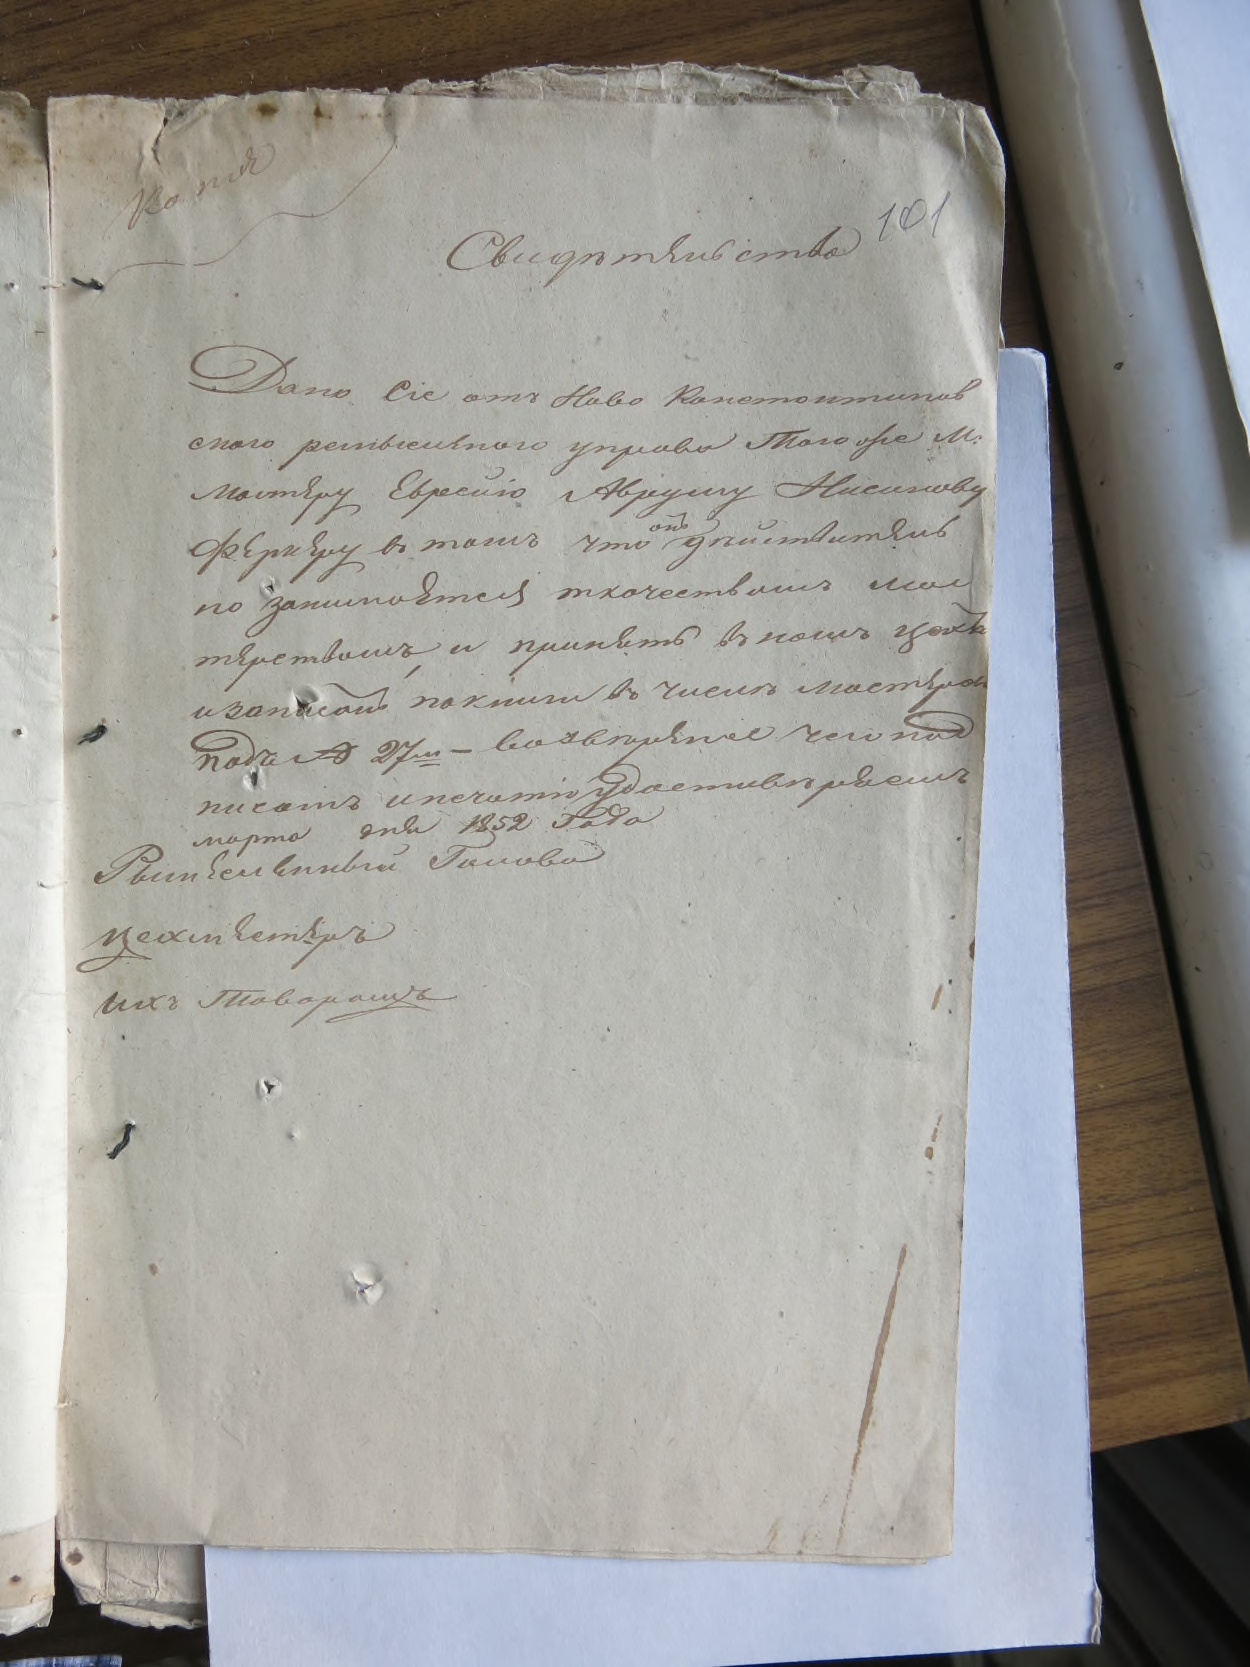 Копія
101
Свидѣтельство
Дано сіе отъ Ново Константинов
ского ремесленого управы Того же М:
Мастеру Еврейію Авруму Нисинову
Ферперу въ томъ что онъ дѣйствитель
но занимается ткачествомъ мас
терствомъ, и принятъ въ нашъ цехъ
и записанъ по книги въ числѣ мастеровъ
подъ № 27м — во звѣреніе чего под
писомъ и печатію удостивѣряемъ
марта дня 1852 Года
Ремесленный Голова
цехместеръ
ихъ Товаришъ